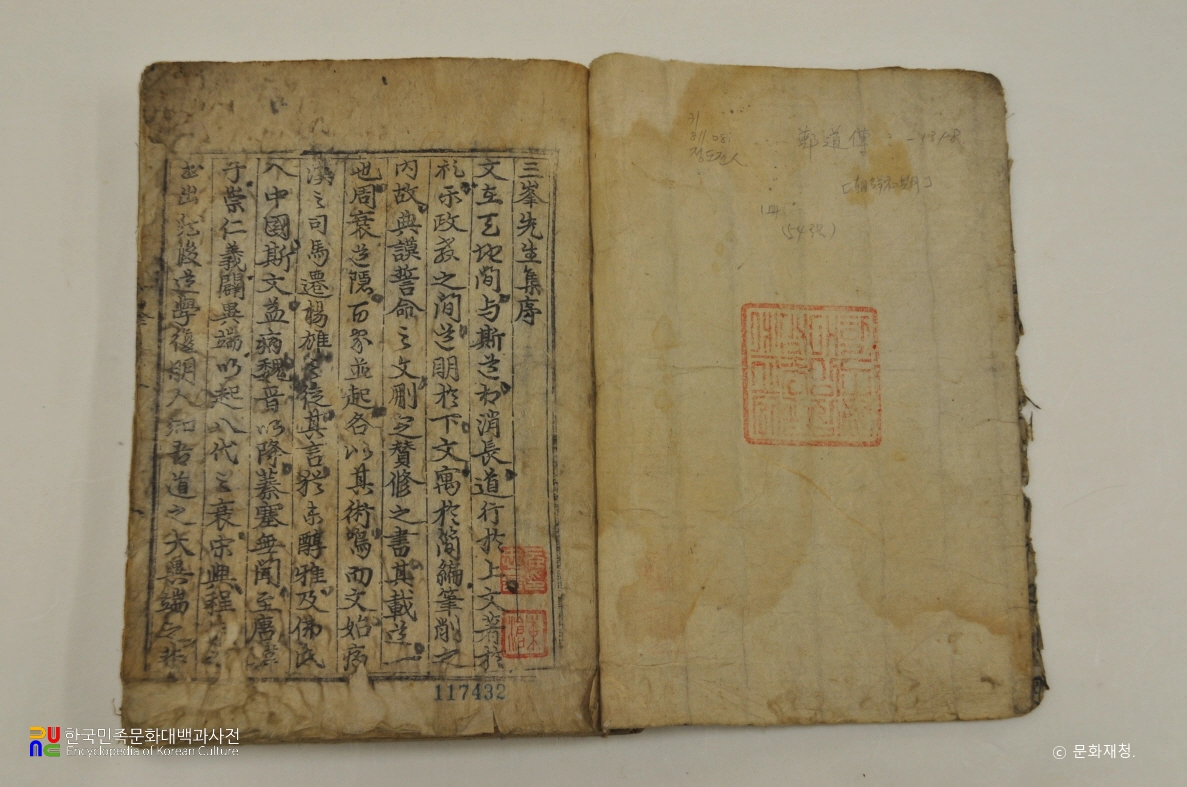 三峯先生集序
文在天地間与斯道相消長道行於上文著於
礼示政教之間道明於下文寓於簡編筆削之
內故典謨誓命之文刪定贊修之書其載道一
也周衰道隱百家並起各以其術鳴而文始病
漢之司馬遷楊雄之徒其言猶未醇雅及佛氏
入中國斯文益病魏晋以降蓁塞無聞至唐
子崇仁義闢異端以起八代之衰宋興程
出然後道學復明人知吾道之大異端之非
117432
鄭道傳
정도전
(54張)
한국민족문화대백과사전
Encyclopedia of Korean Culture
ⓒ 문화재청.